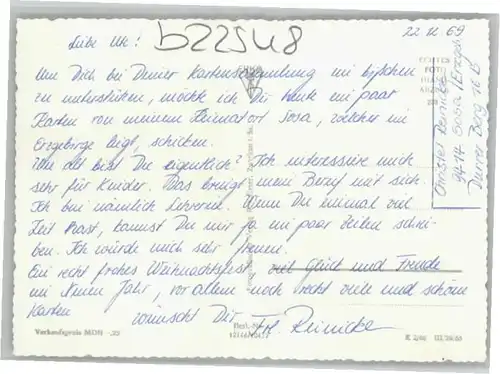 b22548
22. 12. 69
Liebe Ute!
Um Dich bei Deiner Kartensammlung ein bißchen
zu unterstützen, möchte ich Dir heute ein paar
Karten von meinem Heimatort Sosa, welcher im
Erzgebirge liegt, schicken.
Wie alt bist Du eigentlich? Ich interessiere mich
sehr für Kinder. Das bringt mein Beruf mit sich.
Ich bin nämlich Lehrerin. Wenn Du einmal viel
Zeit hast, kannst Du mir ja ein paar Zeilen schrei-
ben. Ich würde mich sehr freuen.
Ein recht frohes Weihnachtsfest viel Glück und Freude
im Neuen Jahr, vor allem noch recht viele und schöne
Karten wünscht Dir Frl. Reinicke
Christel Reinicke
9414 Sosa/Erzgeb.
Dürrer Berg 76 B
Verkaufspreis MDN -,20